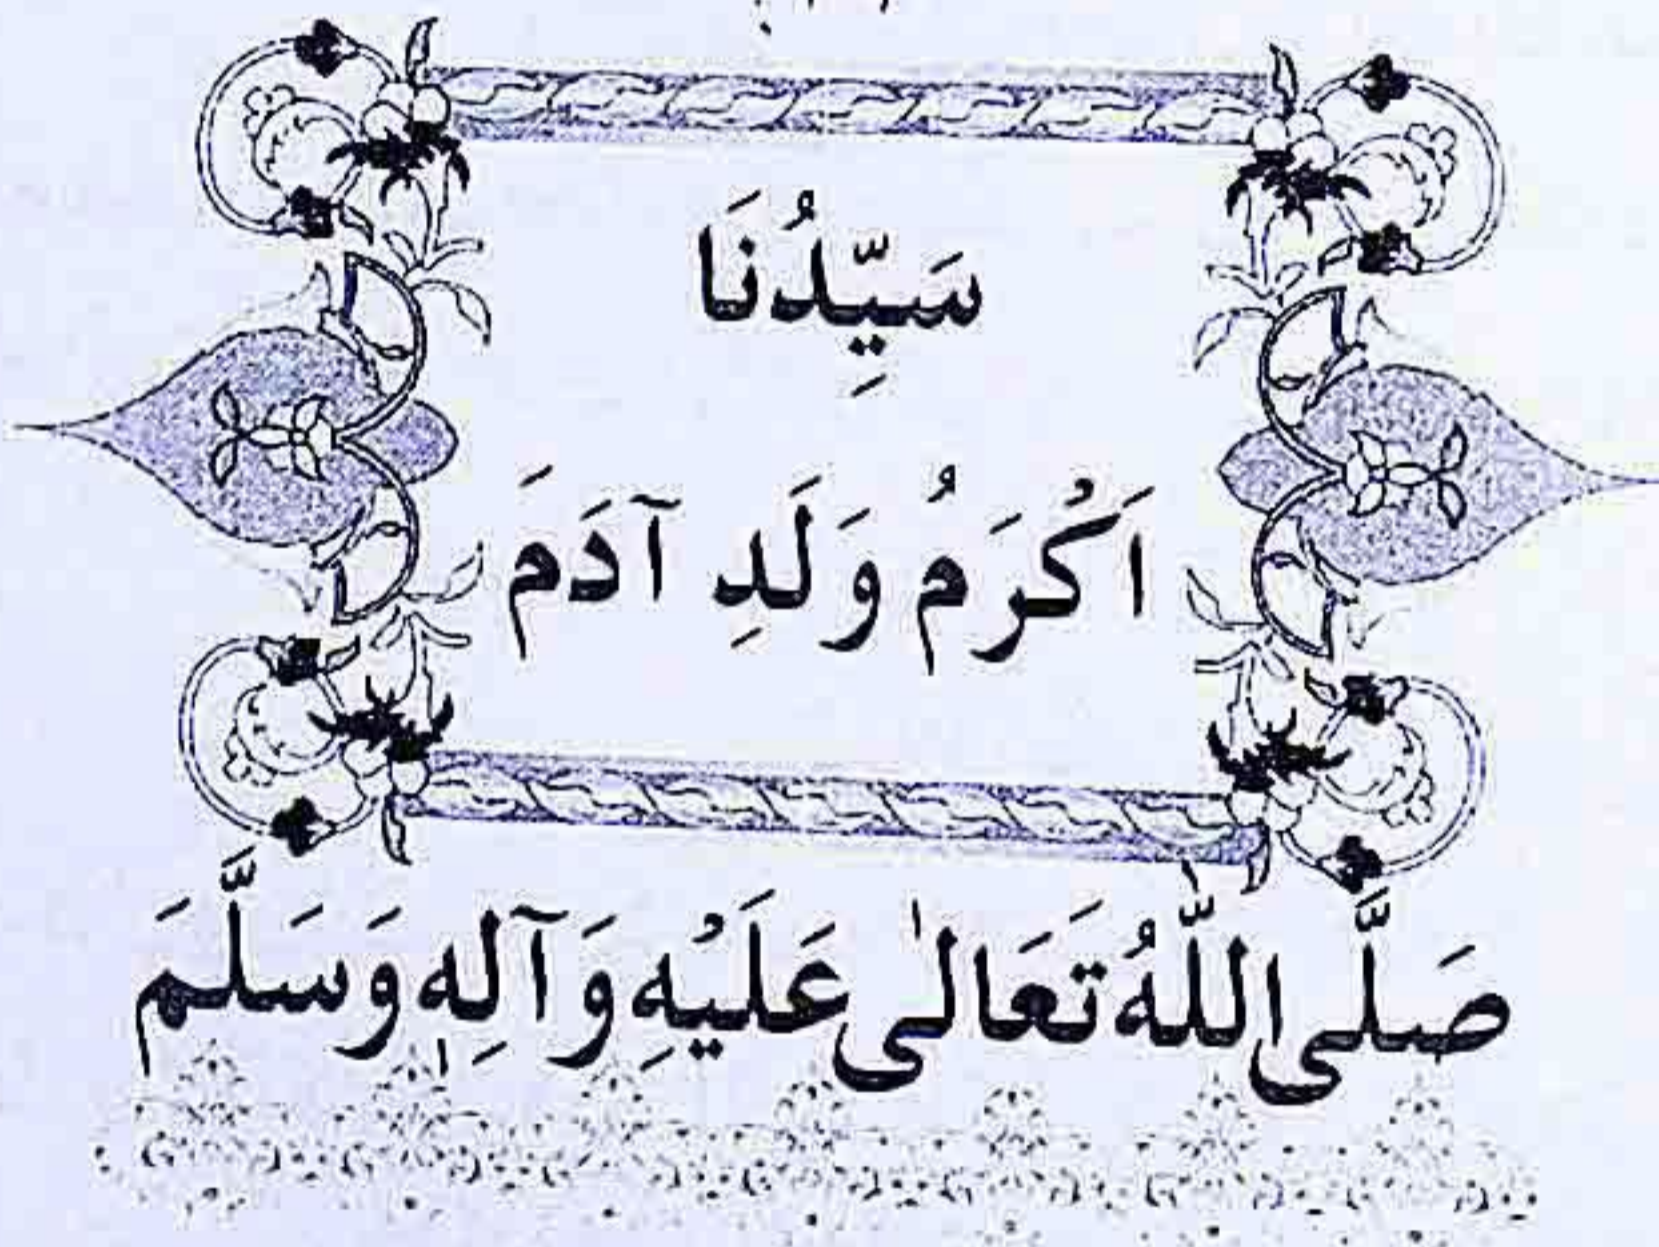 سَيِّدُنَا
اَكْرَمُ وَلَدِ آدَمَ
صَلَّى اللّٰهُ تَعَالٰى عَلَيْهِ وَآلِهِ وَسَلَّمَ